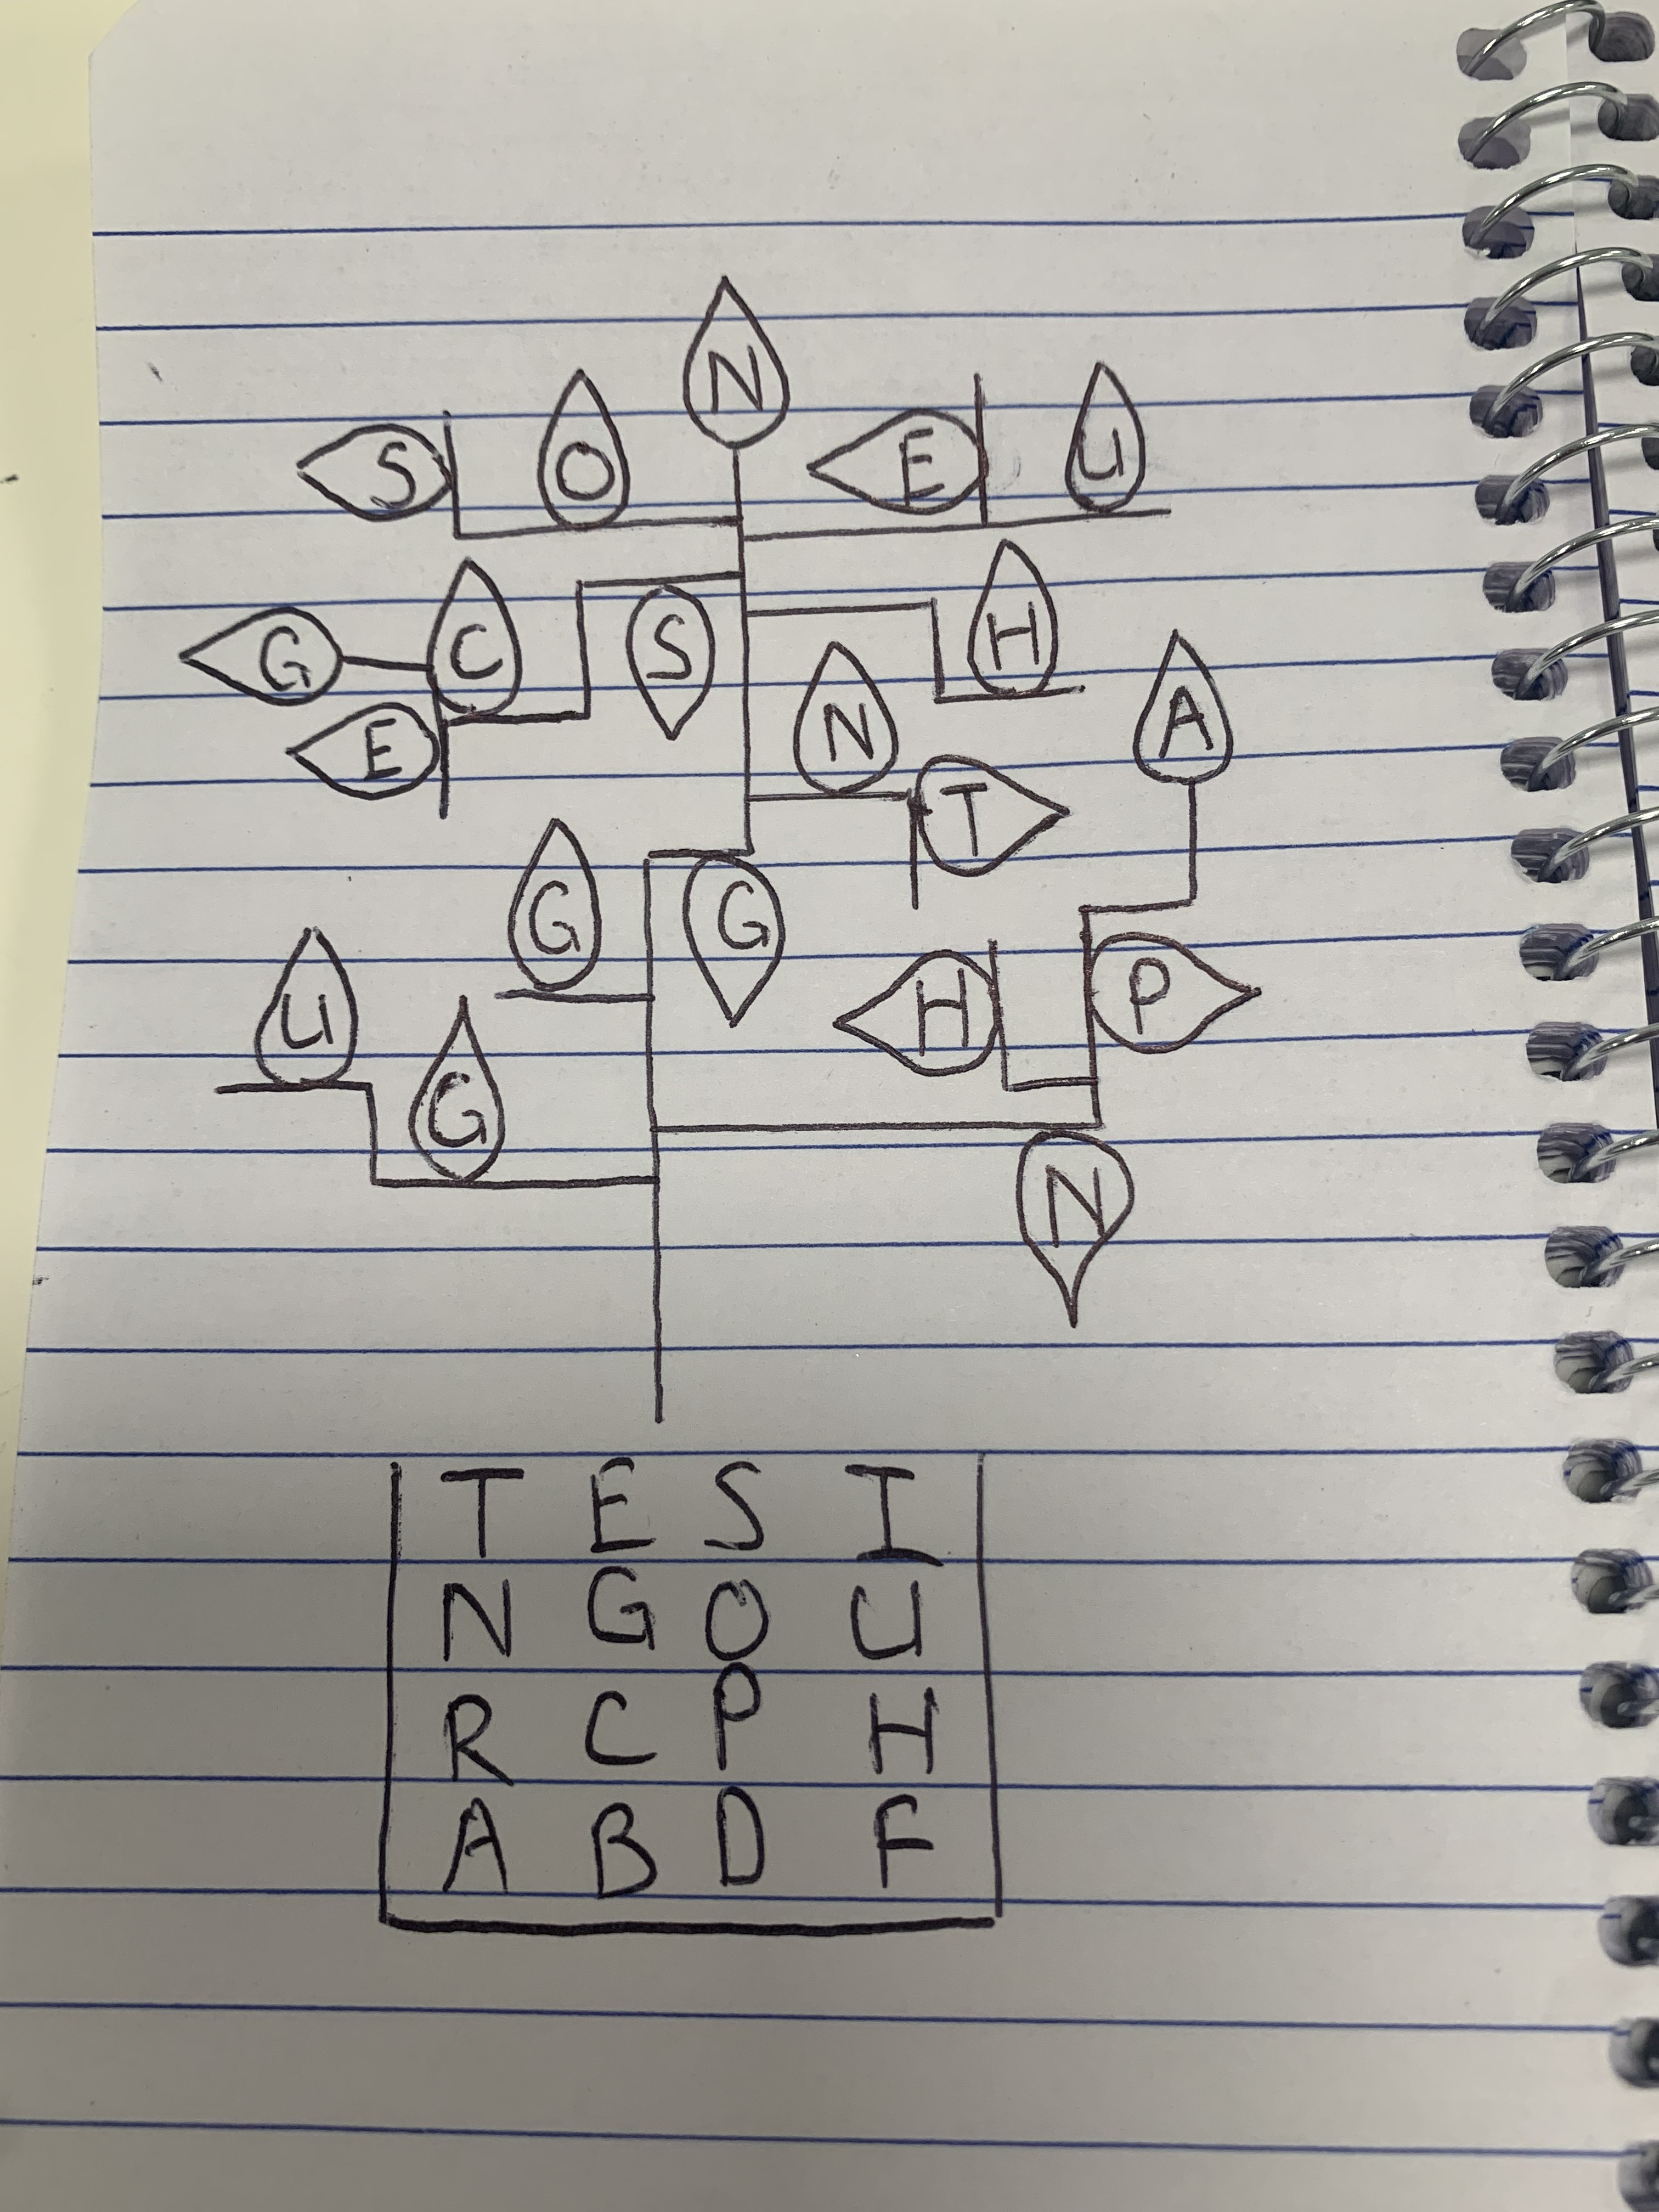 N
S O E U
G C S H
E N T A
G G
U G H P
N
T E S I
N G O U
R C P H
A B D F